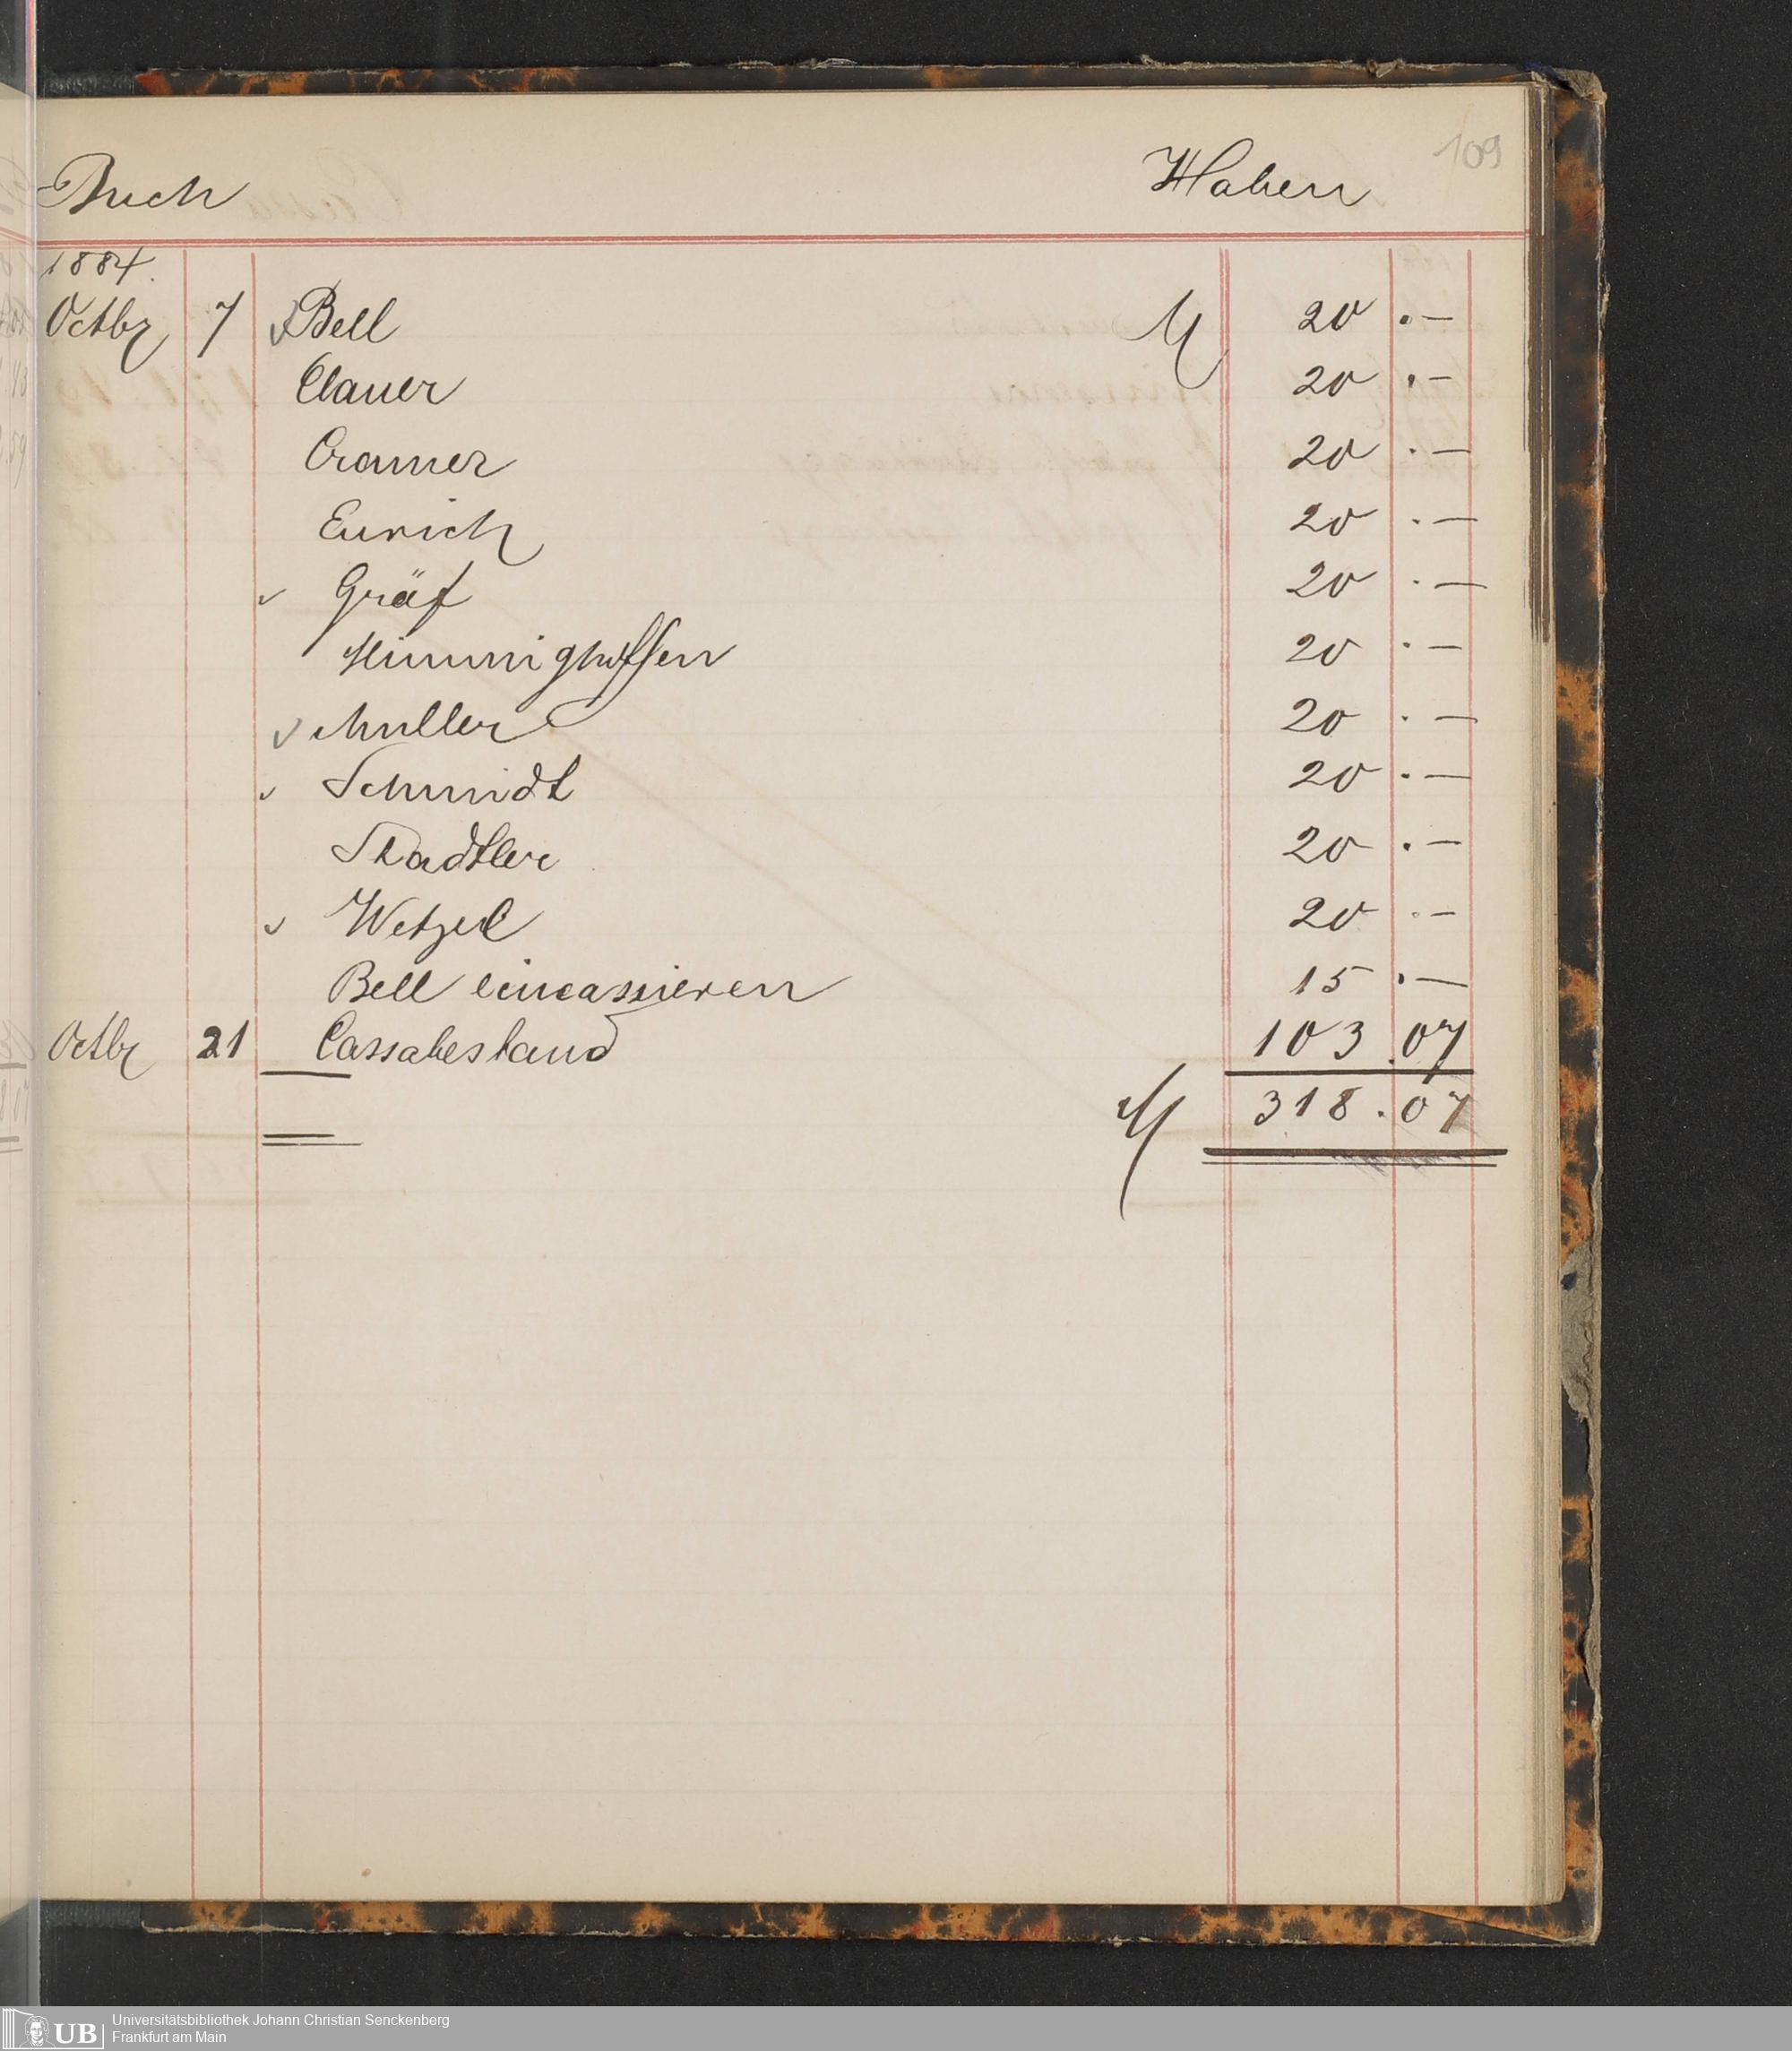 109
Buch Haben
1884.
Octbr 7 Bell M 20 . —
Clauer 20 . —
Cramer 20 . —
Eurich 20 . —
Gräf 20 . —
Himmighoffen 20 . —
Muller 20 . —
Schmidt 20 . —
Stadtler 20 . —
Wetzel 20 . —
Bell eincassieren 15 . —
Octbr 21 Cassabestand 103.07
M 318.07
UB Universitätsbibliothek Johann Christian Senckenberg
Frankfurt am Main